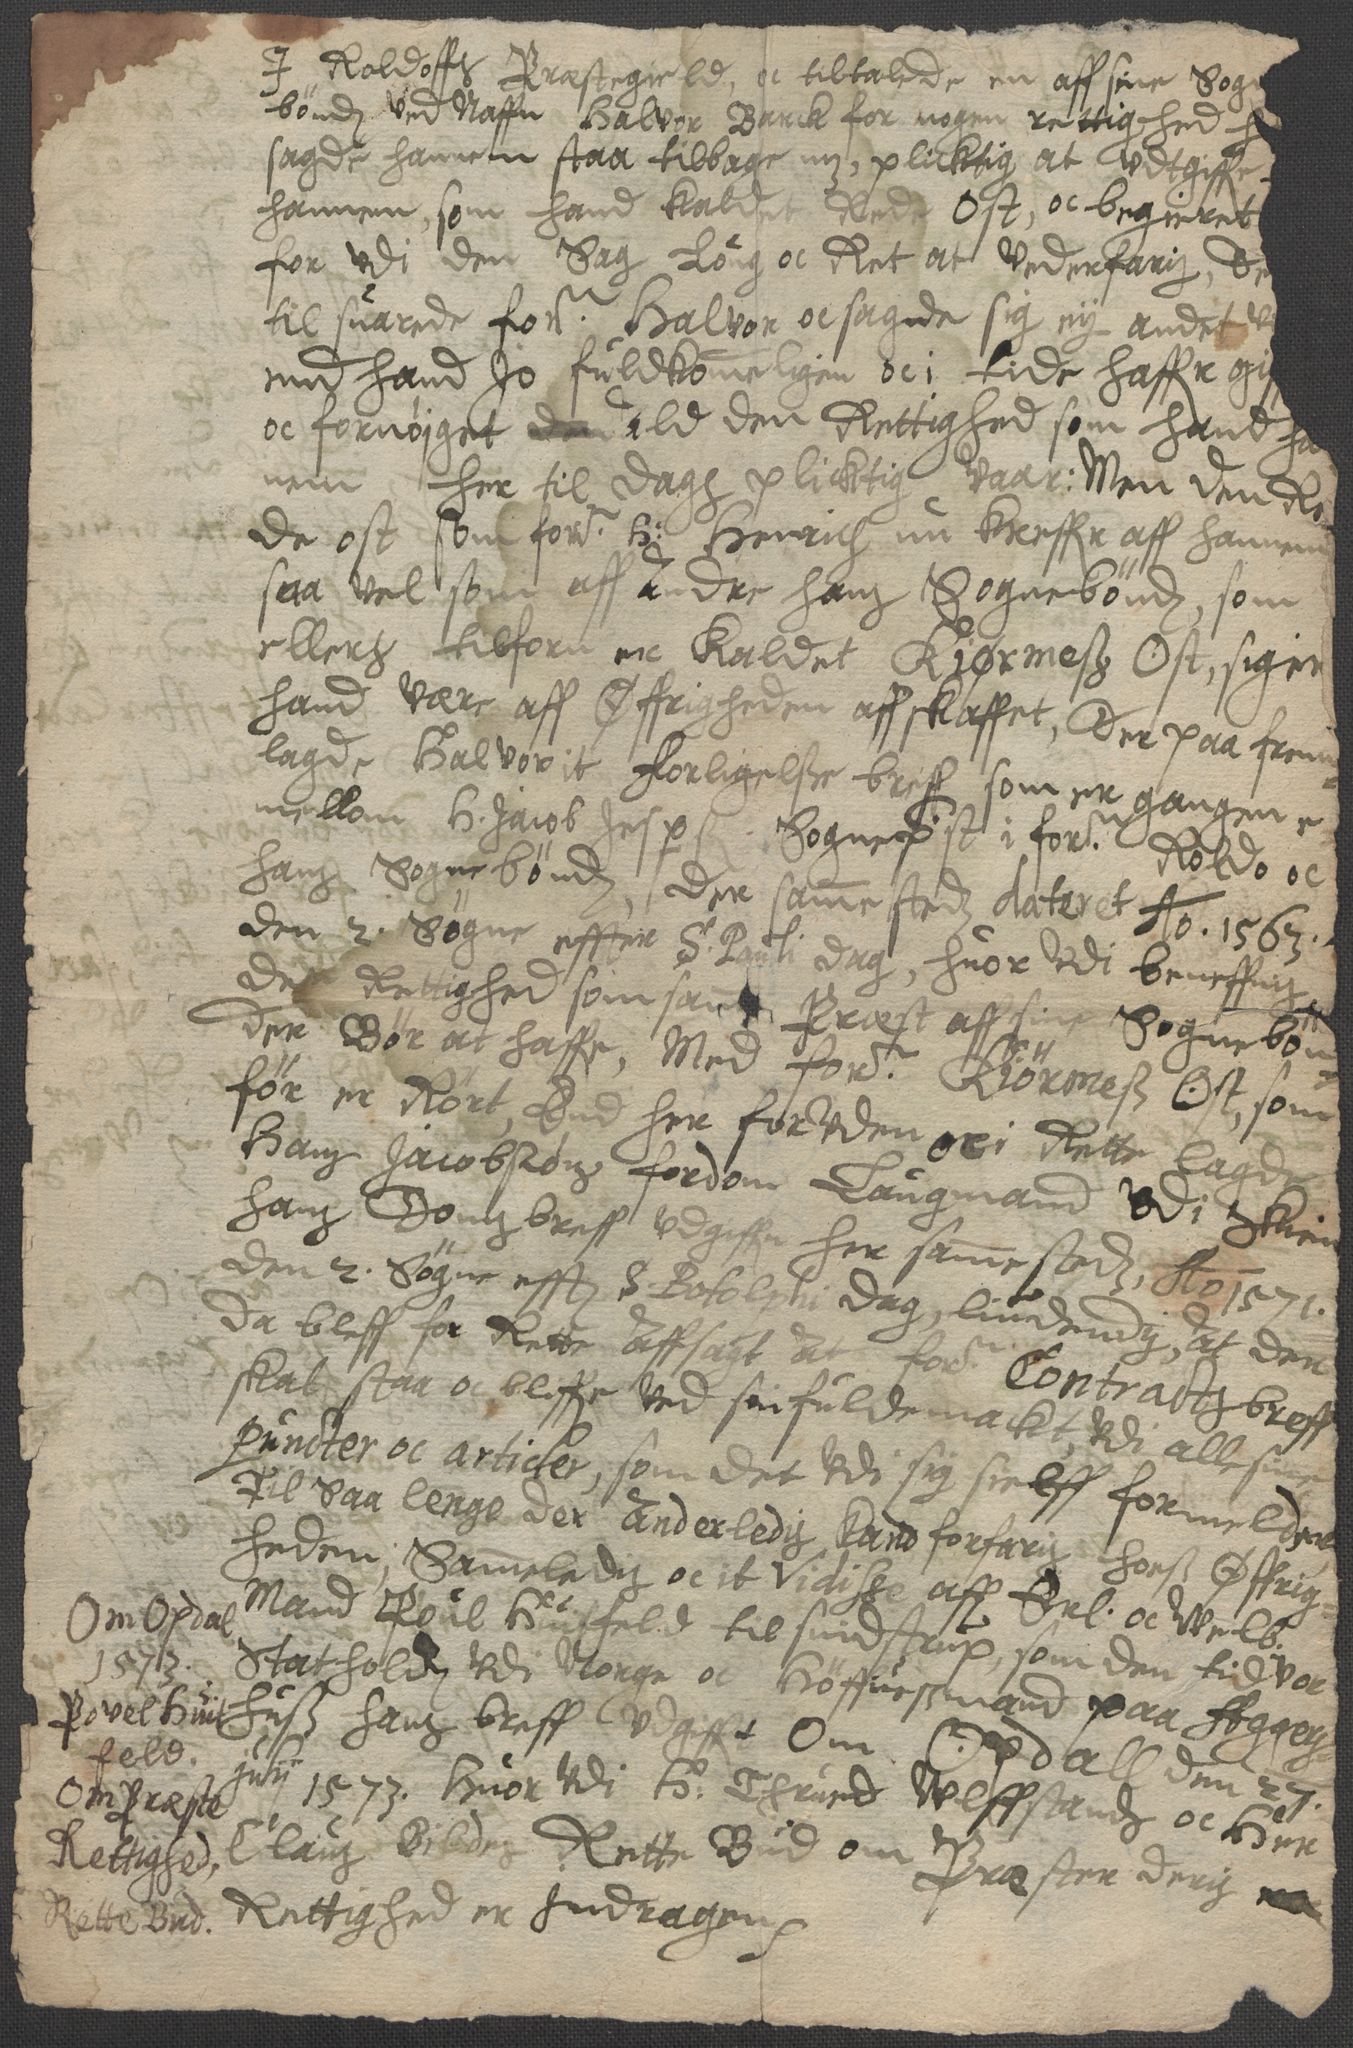 I Roldoffs Præstegield, oc tiltalede en aff sine Sogn
bönd ved Naffn Halvor Barck for nogen rettighed h
sagde hannem staa tilbage mz, plicktig at vdtgiffe
hannem, som hand kaldet Rede Ost, oc begieret
for vdi den Sag Loug oc Ret at vederfaris, De
til suarede fors: Halvor oc sagde sig ey andet v
end hand jo fuldkommeligen oc i tide haffr giff
oc fornöjget ald den Rettighed som hand ha
nem her til dags plicktig vaar: Men den Re
de ost som fors: H: Henrich nu kreffr aff hannem
saa vel som aff Andre hans Sognebönd, som
ellers tilforn er kaldet Kjørmess Ost, siger
hand være aff Øffrigheden affskaffet, Der paa frem
lagde Halvor it forligelsse breff som er gangen
mellom H. Jacob Jesp Sognep st i fors: Roldo oc
hans Sognebönd, der samme steds dateret Ao. 1563.
den 2. Søgne effter S. Pauli dag, huor vdi beneffnis
den Rettighed som samme Præst aff sine Sognebön
der Bör at haffe, Med fors: Kiörmess Ost, som
för er Rört, End her foruden oc i Rette lagde
Hans Jacobsøns fordom Laugmand vdi Skien
hans Doms breff vdgiffn her samme steds, Ao 1571.
den 2. Søgne efft S. Botolphi dag, liudendis, at den
da bleff for Rette Affsagt at fors: Contracts breff
skal staa oc bliffe ved sin fuldemackt, vdi alle sine
puncter oc articler, som det vdi sig sielff formelder
Til Saa lenge der Anderledis kand forfaris hoess Øffrig
heden, Sammeledis oc it Vidisse aff Erl. oc Velb.
Mand Poul Huitfeld til suidstrup, som den tid vor
Statholder vdi Norge oc Höffuesmand paa Aggers
huss hans breff vdgifft Om Opdall den 27.
julij 1573. Huor vdi H: Thrued Vlffstands oc Her
Claus Bildes Rette Bud om Præster deris
Rettighed er Indragen
Om Opdal
1573.
Povel Huit
feld.
Om Præste
Rettighed,
Rette Bud.